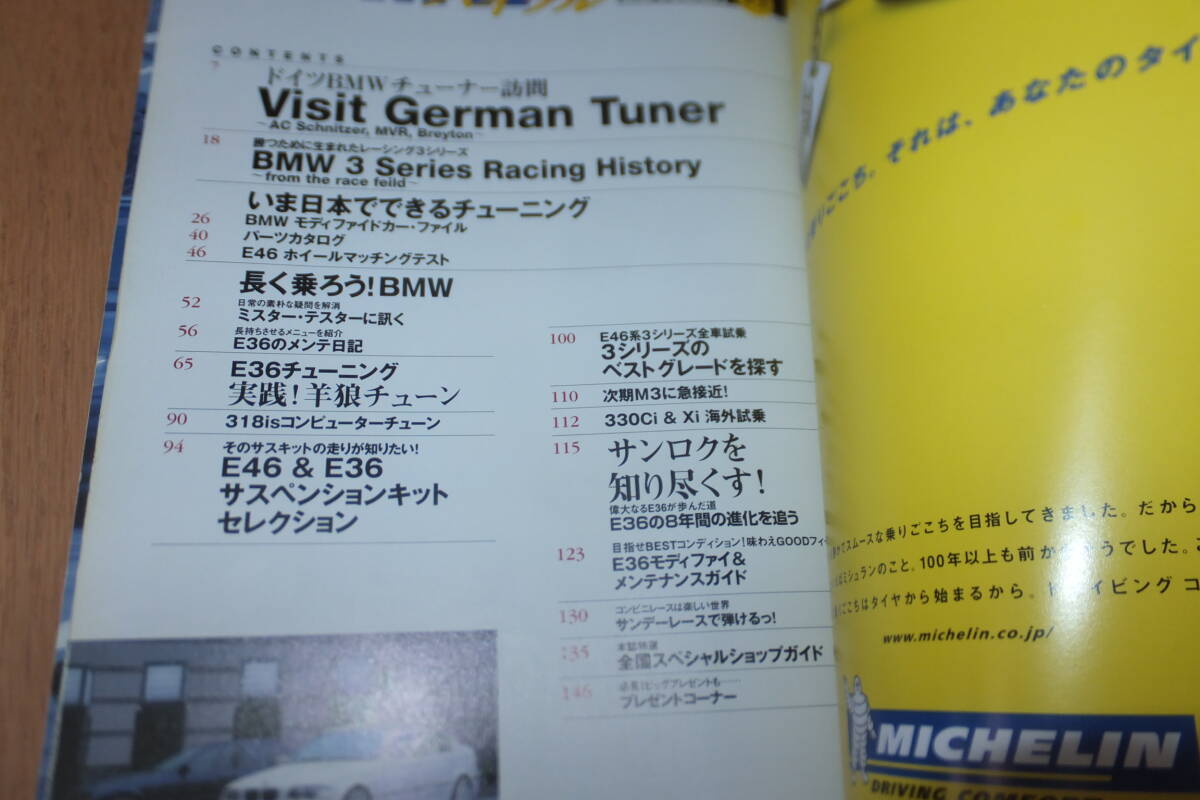 CONTENTS
7
ドイツBMWチューナー訪問
Visit German Tuner
~AC Schnitzer, MVR, Breyton~
18
勝つために生まれたレーシング3シリーズ
BMW 3 Series Racing History
~from the race feild~
いま日本でできるチューニング
26
BMW モディファイドカー・ファイル
40
パーツカタログ
46
E46 ホイールマッチングテスト
長く乗ろう!BMW
52
日常の素朴な疑問を解消
ミスター・テスターに訊く
56
長持ちさせるメニューを紹介
E36のメンテ日記
65
E36チューニング
実践!羊狼チューン
90
318isコンピューターチューン
94
そのサスキットの走りが知りたい!
E46 & E36
サスペンションキット
セレクション
100
E46系3シリーズ全車試乗
3シリーズの
ベストグレードを探す
110
次期M3に急接近!
112
330Ci & Xi 海外試乗
115
サンロクを
知り尽くす!
偉大なるE36が歩んだ道
E36の8年間の進化を追う
123
目指せBESTコンディション!味わえGOODフィー
E36モディファイ&
メンテナンスガイド
130
コンビニレースは楽しい世界
サンデーレースで弾けるっ!
135
本誌特選
全国スペシャルショップガイド
146
必見!ビッグプレゼントも……
プレゼントコーナー
りごこち。それは、あなたのタイ
スムースな乗りごこちを目指してきました。だから
ミシュランのこと。100年以上も前か
うでした。
りごこちはタイヤから始まるから。ド
イビング コ
www.michelin.co.jp/
MICHELIN
DRIVING COMFORT